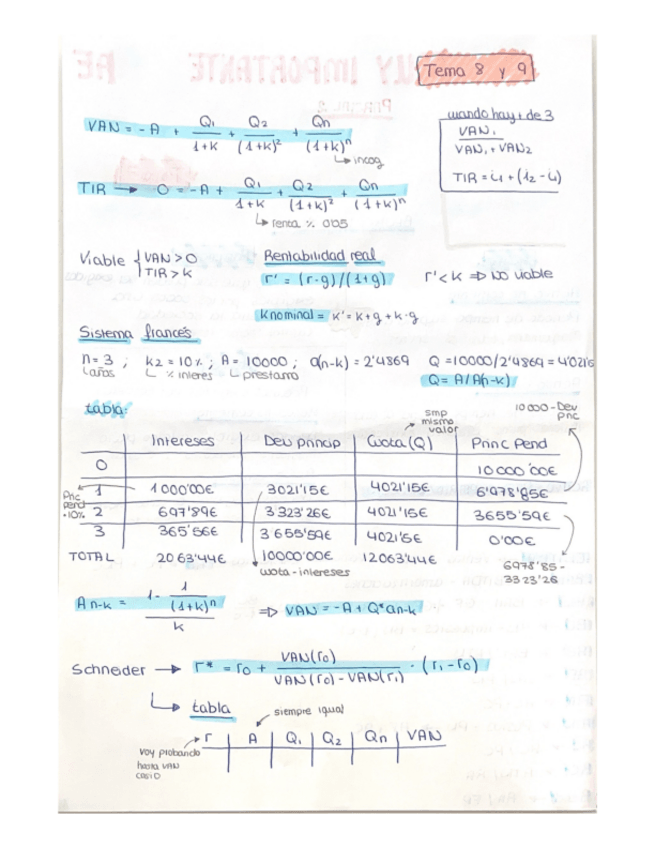 Tema 8 y 9
VAN = -A + Q₁/(1+k) + Q₂/(1+k)² + Qn/(1+k)ⁿ
↳ incog
cuando hay + de 3
VAN₁
VAN₁ + VAN₂
TIR = i₁ + (i₂ - i₁)
TIR → 0 = -A + Q₁/(1+k) + Q₂/(1+k)² + Qn/(1+k)ⁿ
↳ renta % obs
Viable { VAN > 0
TIR > k
Rentabilidad real
r' = (r-g)/(1+g)
r' < k ⇒ No viable
k nominal = k' = k + g + k·g
Sistema francés
n = 3 ; k2 = 10% ; A = 10000 ; a(n-k) = 2'4869 Q = 10000/2'4869 = 4'021'5
↳ años ↳ % interes ↳ prestamo Q = A/A(n-k)
tabla:
smp mismo valor
10000 - Dev pnc
Intereses Dev princip Cuota (Q) Princ Pend
0 10000'00€
1 1000'00€ 3021'15€ 4021'15€ 6'978'85€
Pric pend · 10%
2 697'89€ 3323'26€ 4021'15€ 3655'59€
3 365'56€ 3655'59€ 4021'5€ 0'00€
TOTAL 2063'44€ 10000'00€ 12063'44€
cuota - intereses
6978'85 -
3323'26
An-k = (1 - 1/(1+k)ⁿ)/k ⇒ VAN = -A + Q*an-k
Schneider → r* = r₀ + VAN(r₀)/(VAN(r₀) - VAN(r₁)) · (r₁ - r₀)
↳ tabla
siempre igual
r A Q₁ Q₂ Qn VAN
voy probando
hasta VAN
casi 0